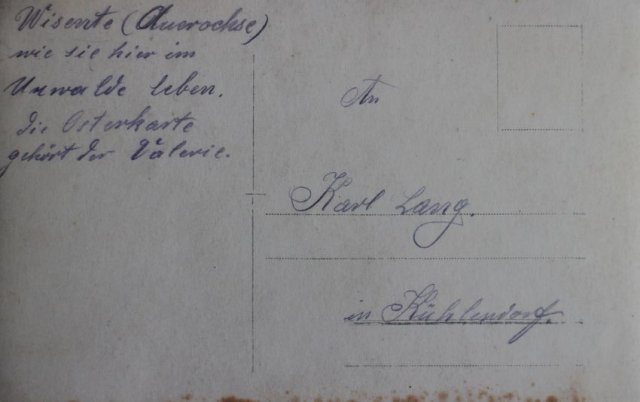 Wisente (Auerochse)
wie sie hier im
Urwalde leben.
die Osterkarte
gehört der Valerie.
An
Karl Lang.
in Kühlendorf.